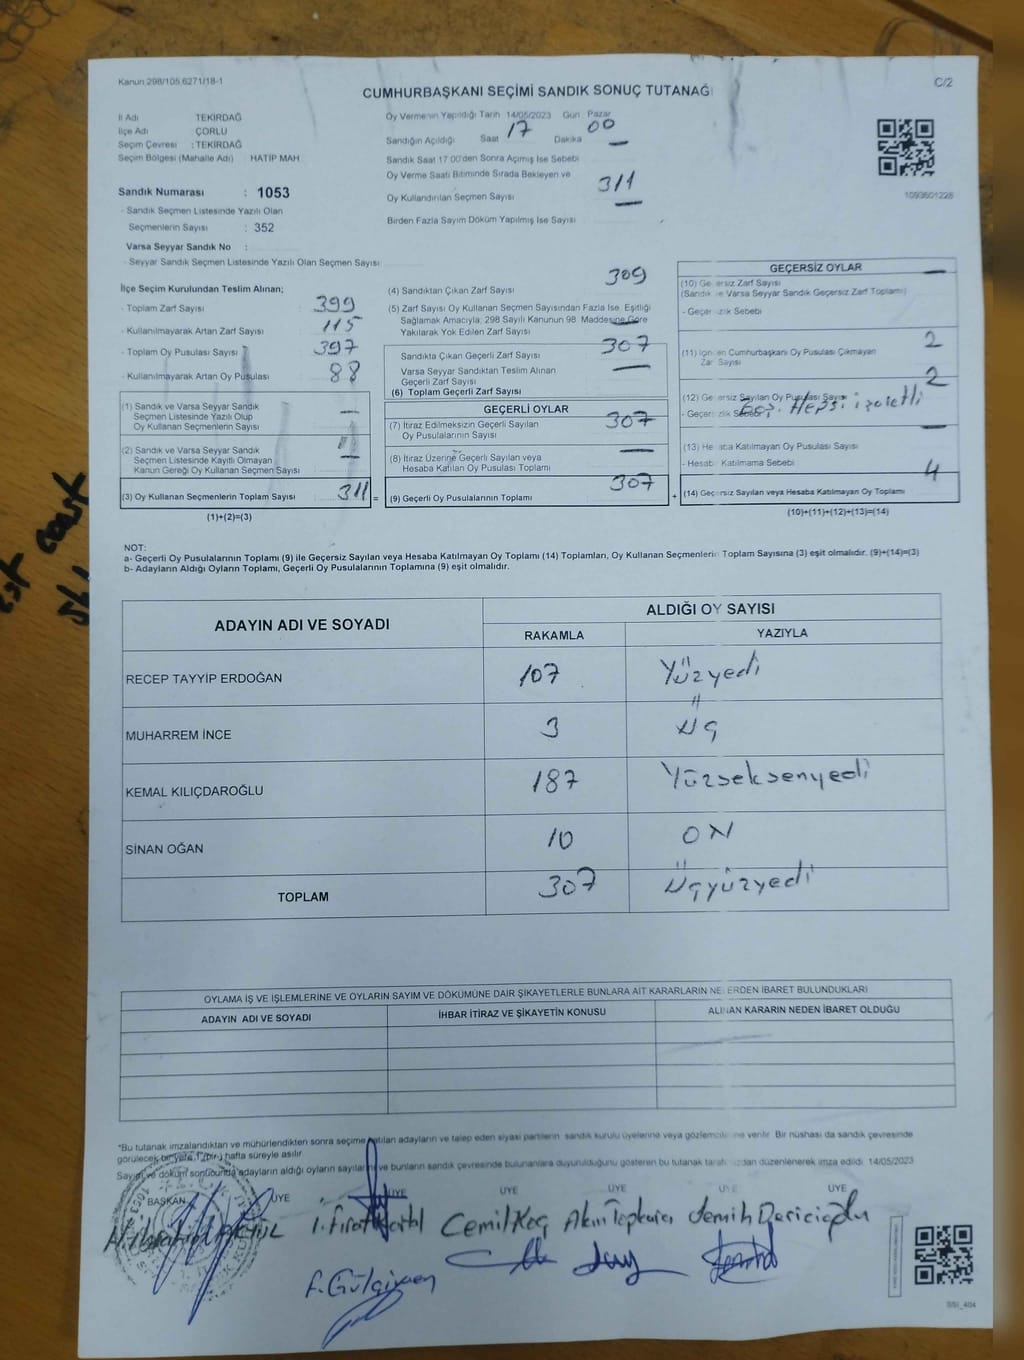 Kanun 298/105,6271/18-1
C/2
CUMHURBAŞKANI SEÇİMİ SANDIK SONUÇ TUTANAĞI
İl Adı TEKİRDAĞ
İlçe Adı ÇORLU
Seçim Çevresi : TEKİRDAĞ
Seçim Bölgesi (Mahalle Adı) HATIP MAH
Sandık Numarası : 1053
- Sandık Seçmen Listesinde Yazılı Olan
Seçmenlerin Sayısı : 352
Varsa Seyyar Sandık No :
- Seyyar Sandık Seçmen Listesinde Yazılı Olan Seçmen Sayısı
Oy Vermenin Yapıldığı Tarih 14/05/2023 Gün : Pazar
Sandığın Açıldığı Saat 17 Dakika 00
Sandık Saat 17 00'den Sonra Açımış İse Sebebi
Oy Verme Saati Bitiminde Sırada Bekleyen ve
Oy Kullandırılan Seçmen Sayısı 311
Birden Fazla Sayım Döküm Yapılmış İse Sayısı
1093601226
İlçe Seçim Kurulundan Teslim Alınan;
- Toplam Zarf Sayısı 399
- Kullanılmayarak Artan Zarf Sayısı 115
- Toplam Oy Pusulası Sayısı 397
- Kullanılmayarak Artan Oy Pusulası 88
(1) Sandık ve Varsa Seyyar Sandık
Seçmen Listesinde Yazılı Olup
Oy Kullanan Seçmenlerin Sayısı —
(2) Sandık ve Varsa Seyyar Sandık
Seçmen Listesinde Kayıtlı Olmayan
Kanun Gereği Oy Kullanan Seçmen Sayısı —
(3) Oy Kullanan Seçmenlerin Toplam Sayısı 311 =
(1)+(2)=(3)
(4) Sandıktan Çıkan Zarf Sayısı 309
(5) Zarf Sayısı Oy Kullanan Seçmen Sayısından Fazla İse, Eşitliği
Sağlamak Amacıyla, 298 Sayılı Kanunun 98. Maddesine Göre
Yakılarak Yok Edilen Zarf Sayısı —
Sandıkta Çıkan Geçerli Zarf Sayısı 307
Varsa Seyyar Sandıktan Teslim Alınan
Geçerli Zarf Sayısı —
(6) Toplam Geçerli Zarf Sayısı
GEÇERLİ OYLAR
(7) İtiraz Edilmeksizin Geçerli Sayılan
Oy Pusulalarının Sayısı 307
(8) İtiraz Üzerine Geçerli Sayılan veya
Hesaba Katılan Oy Pusulası Toplamı —
(9) Geçerli Oy Pusulalarının Toplamı 307 +
GEÇERSİZ OYLAR
(10) Geçersiz Zarf Sayısı —
(Sandık ve Varsa Seyyar Sandık Geçersiz Zarf Toplamı)
- Geçersizlik Sebebi
(11) İçinden Cumhurbaşkanı Oy Pusulası Çıkmayan
Zarf Sayısı 2
(12) Geçersiz Sayılan Oy Pusulası Sayısı 2
- Geçersizlik Sebebi Hepsi işaretli
(13) Hesaba Katılmayan Oy Pusulası Sayısı —
- Hesaba Katılmama Sebebi
(14) Geçersiz Sayılan veya Hesaba Katılmayan Oy Toplamı 4
(10)+(11)+(12)+(13)=(14)
NOT:
a- Geçerli Oy Pusulalarının Toplamı (9) ile Geçersiz Sayılan veya Hesaba Katılmayan Oy Toplamı (14) Toplamları, Oy Kullanan Seçmenlerin Toplam Sayısına (3) eşit olmalıdır. (9)+(14)=(3)
b- Adayların Aldığı Oyların Toplamı, Geçerli Oy Pusulalarının Toplamına (9) eşit olmalıdır.
ADAYIN ADI VE SOYADI ALDIĞI OY SAYISI
RAKAMLA YAZIYLA
RECEP TAYYİP ERDOĞAN 107 Yüzyedi
MUHARREM İNCE 3 Üç
KEMAL KILIÇDAROĞLU 187 Yüzseksenyedi
SİNAN OĞAN 10 ON
TOPLAM 307 Üçyüzyedi
OYLAMA İŞ VE İŞLEMLERİNE VE OYLARIN SAYIM VE DÖKÜMÜNE DAİR ŞİKAYETLERLE BUNLARA AİT KARARLARIN NELERDEN İBARET BULUNDUKLARI
ADAYIN ADI VE SOYADI İHBAR İTİRAZ VE ŞİKAYETİN KONUSU ALINAN KARARIN NEDEN İBARET OLDUĞU
*Bu tutanak imzalandıktan ve mühürlendikten sonra seçime katılan adayların ve talep eden siyasi partilerin sandık kurulu üyelerine veya gözlemcilerine verilir. Bir nüshası da sandık çevresinde
görülecek bir yere 1 (bir) hafta süreyle asılır.
Sayım ve döküm sonucunda adayların aldığı oyların sayıları ve bunların sandık çevresinde bulunanlara duyurulduğunu gösteren bu tutanak tarafımızdan düzenlenerek imza edildi. 14/05/2023
BAŞKAN ÜYE ÜYE ÜYE ÜYE ÜYE ÜYE
İ. Fırat Kartal Cemil Koç Akın Topkara Semih Dericioğlu
F. Gülgimen
SSI_404